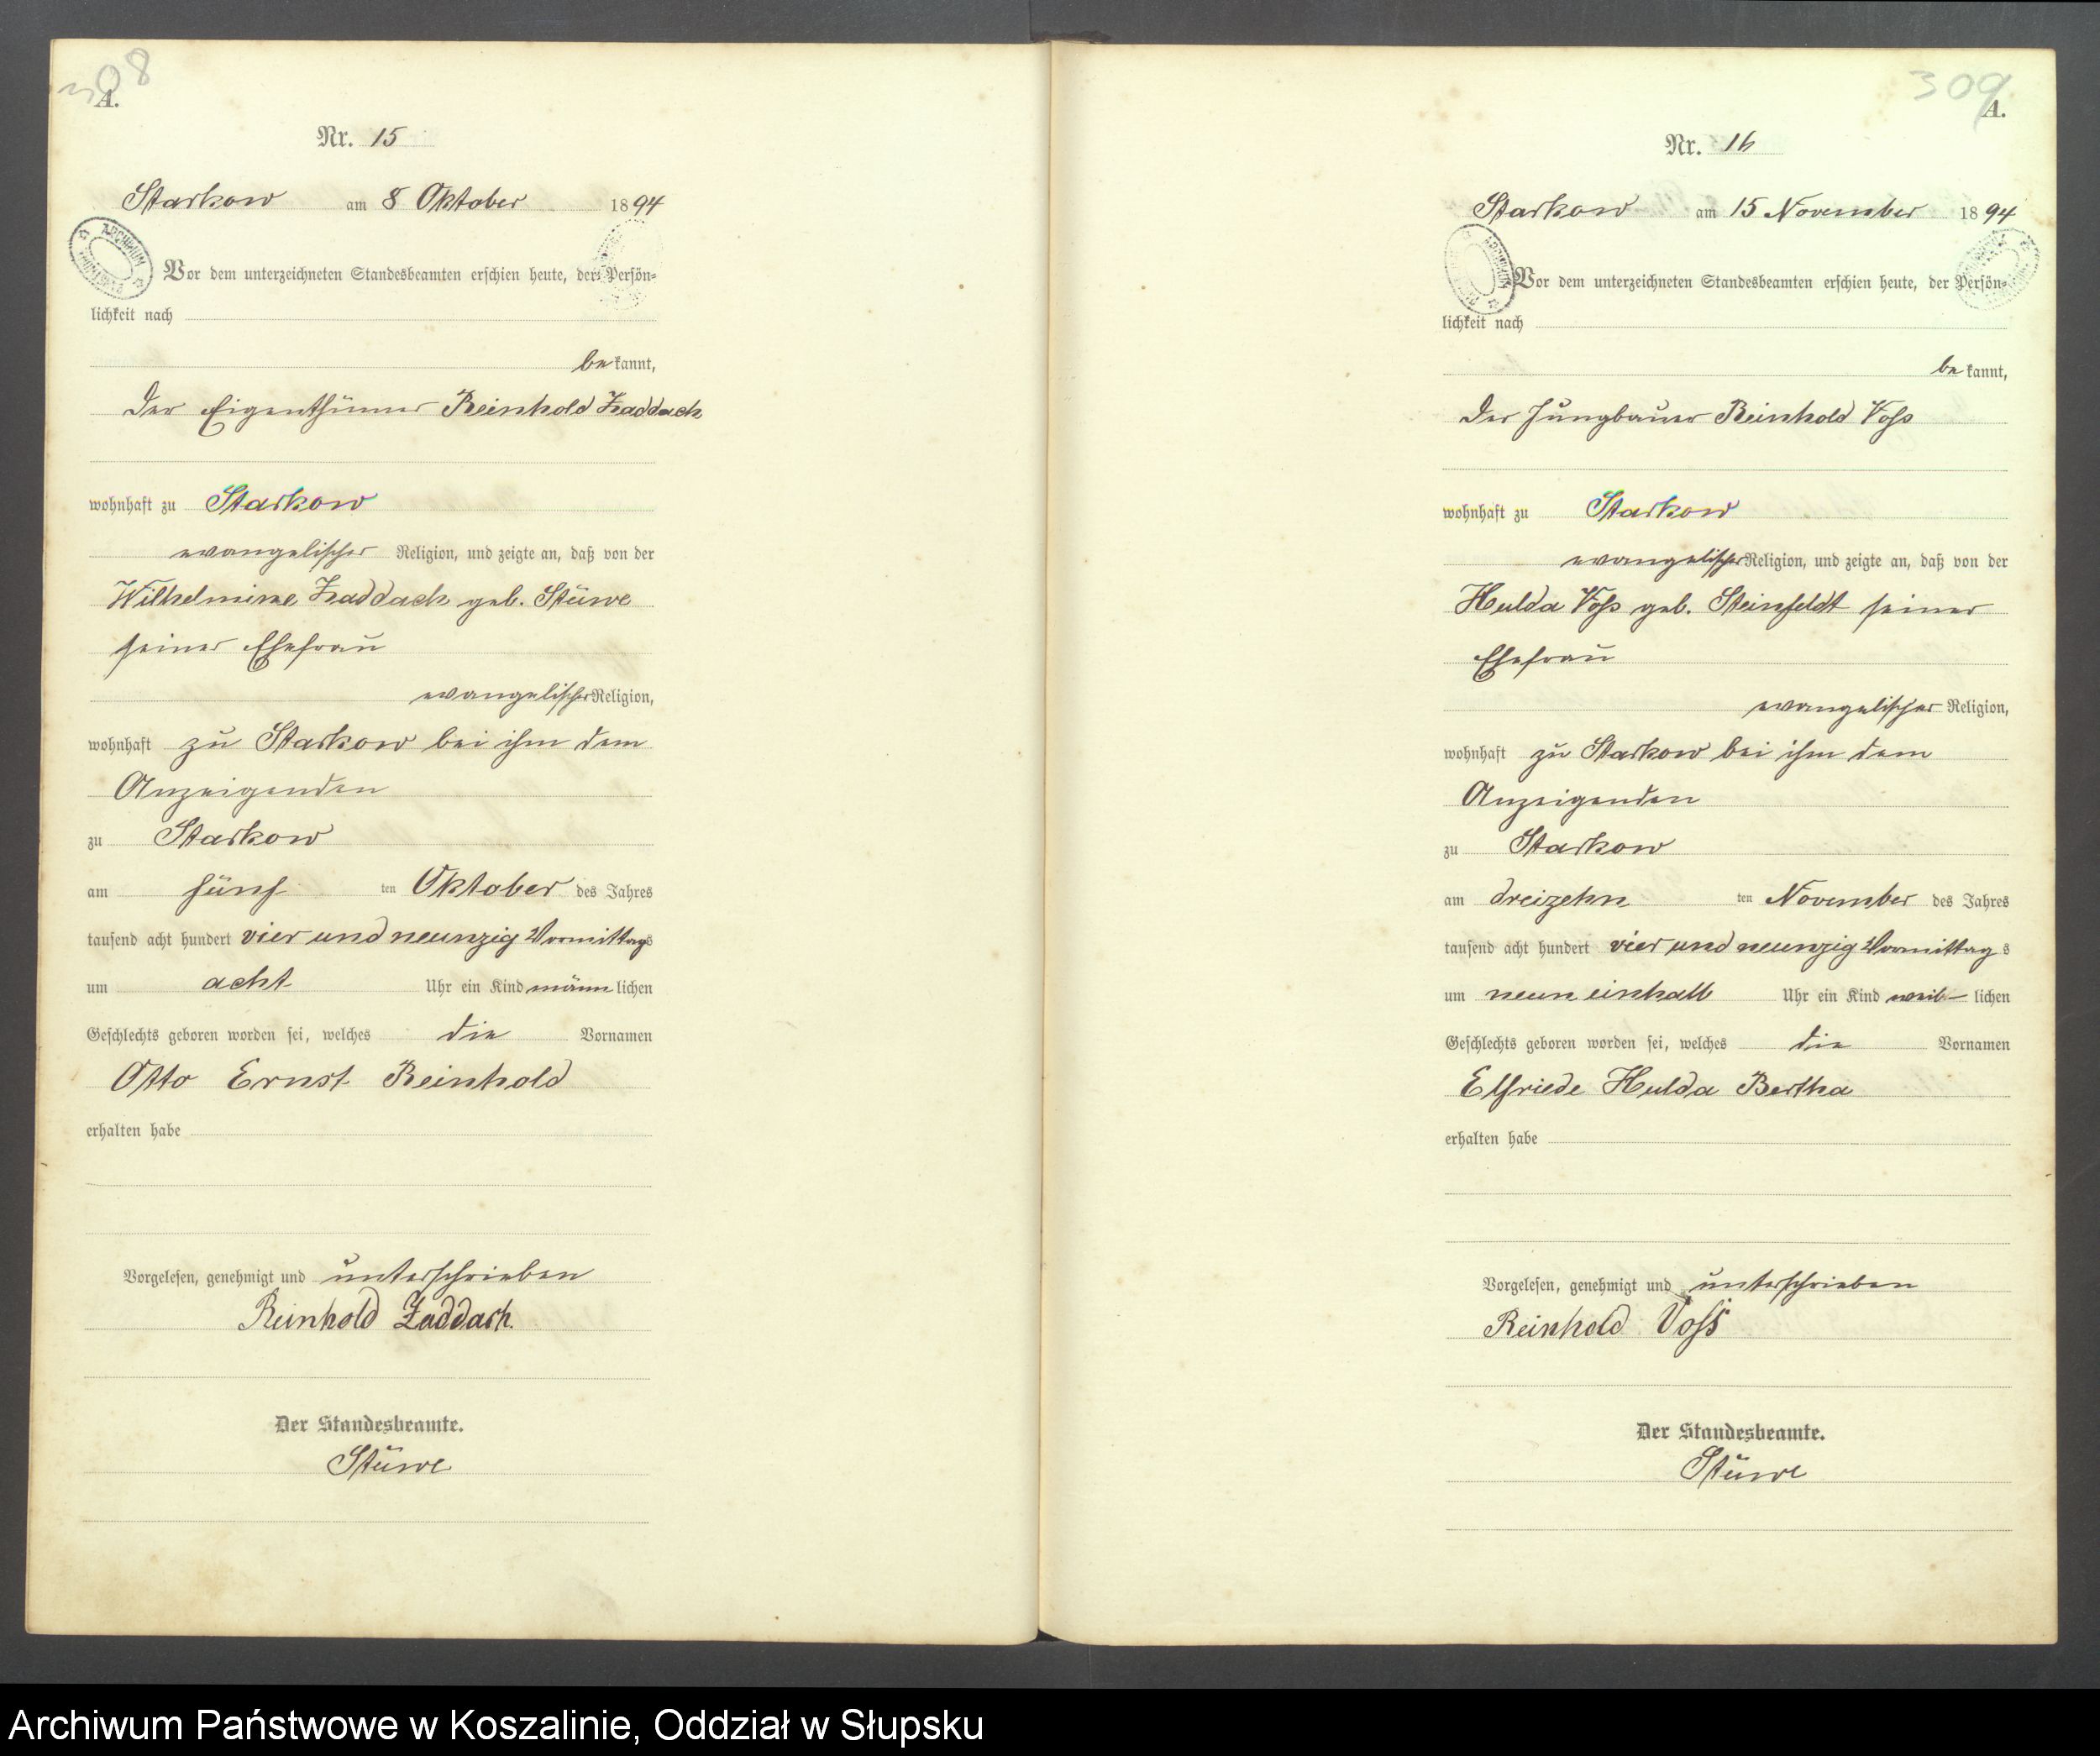 308
A.
Nr. 15
Starkow am 8 Oktober 1894
Vor dem unterzeichneten Standesbeamten erschien heute, der Persön-
lichkeit nach
bekannt,
der Eigenthümer Reinhold Zaddach
wohnhaft zu Starkow
evangelischer Religion, und zeigte an, daß von der
Wilhelmine Zaddach geb. Stüwe
seiner Ehefrau
evangelischer Religion,
wohnhaft zu Starkow bei ihm dem
Anzeigenden
zu Starkow
am fünf ten Oktober des Jahres
tausend acht hundert vier und neunzig Vormittags
um acht Uhr ein Kind männlichen
Geschlechts geboren worden sei, welches die Vornamen
Otto Ernst Reinhold
erhalten habe
Vorgelesen, genehmigt und unterschrieben
Reinhold Zaddach.
Der Standesbeamte.
Stüwe
309
A.
Nr. 16
Starkow am 15 November 1894
Vor dem unterzeichneten Standesbeamten erschien heute, der Persön-
lichkeit nach
bekannt,
der Jungbauer Reinhold Voß
wohnhaft zu Starkow
evangelischer Religion, und zeigte an, daß von der
Hulda Voß geb. Steinfeldt seiner
Ehefrau
evangelischer Religion,
wohnhaft zu Starkow bei ihm dem
Anzeigenden
zu Starkow
am dreizehn ten November des Jahres
tausend acht hundert vier und neunzig Vormittags
um neun einhalb Uhr ein Kind weib- lichen
Geschlechts geboren worden sei, welches die Vornamen
Elfriede Hulda Bertha
erhalten habe
Vorgelesen, genehmigt und unterschrieben
Reinhold Voß
Der Standesbeamte.
Stüwe
Archiwum Państwowe w Koszalinie, Oddział w Słupsku